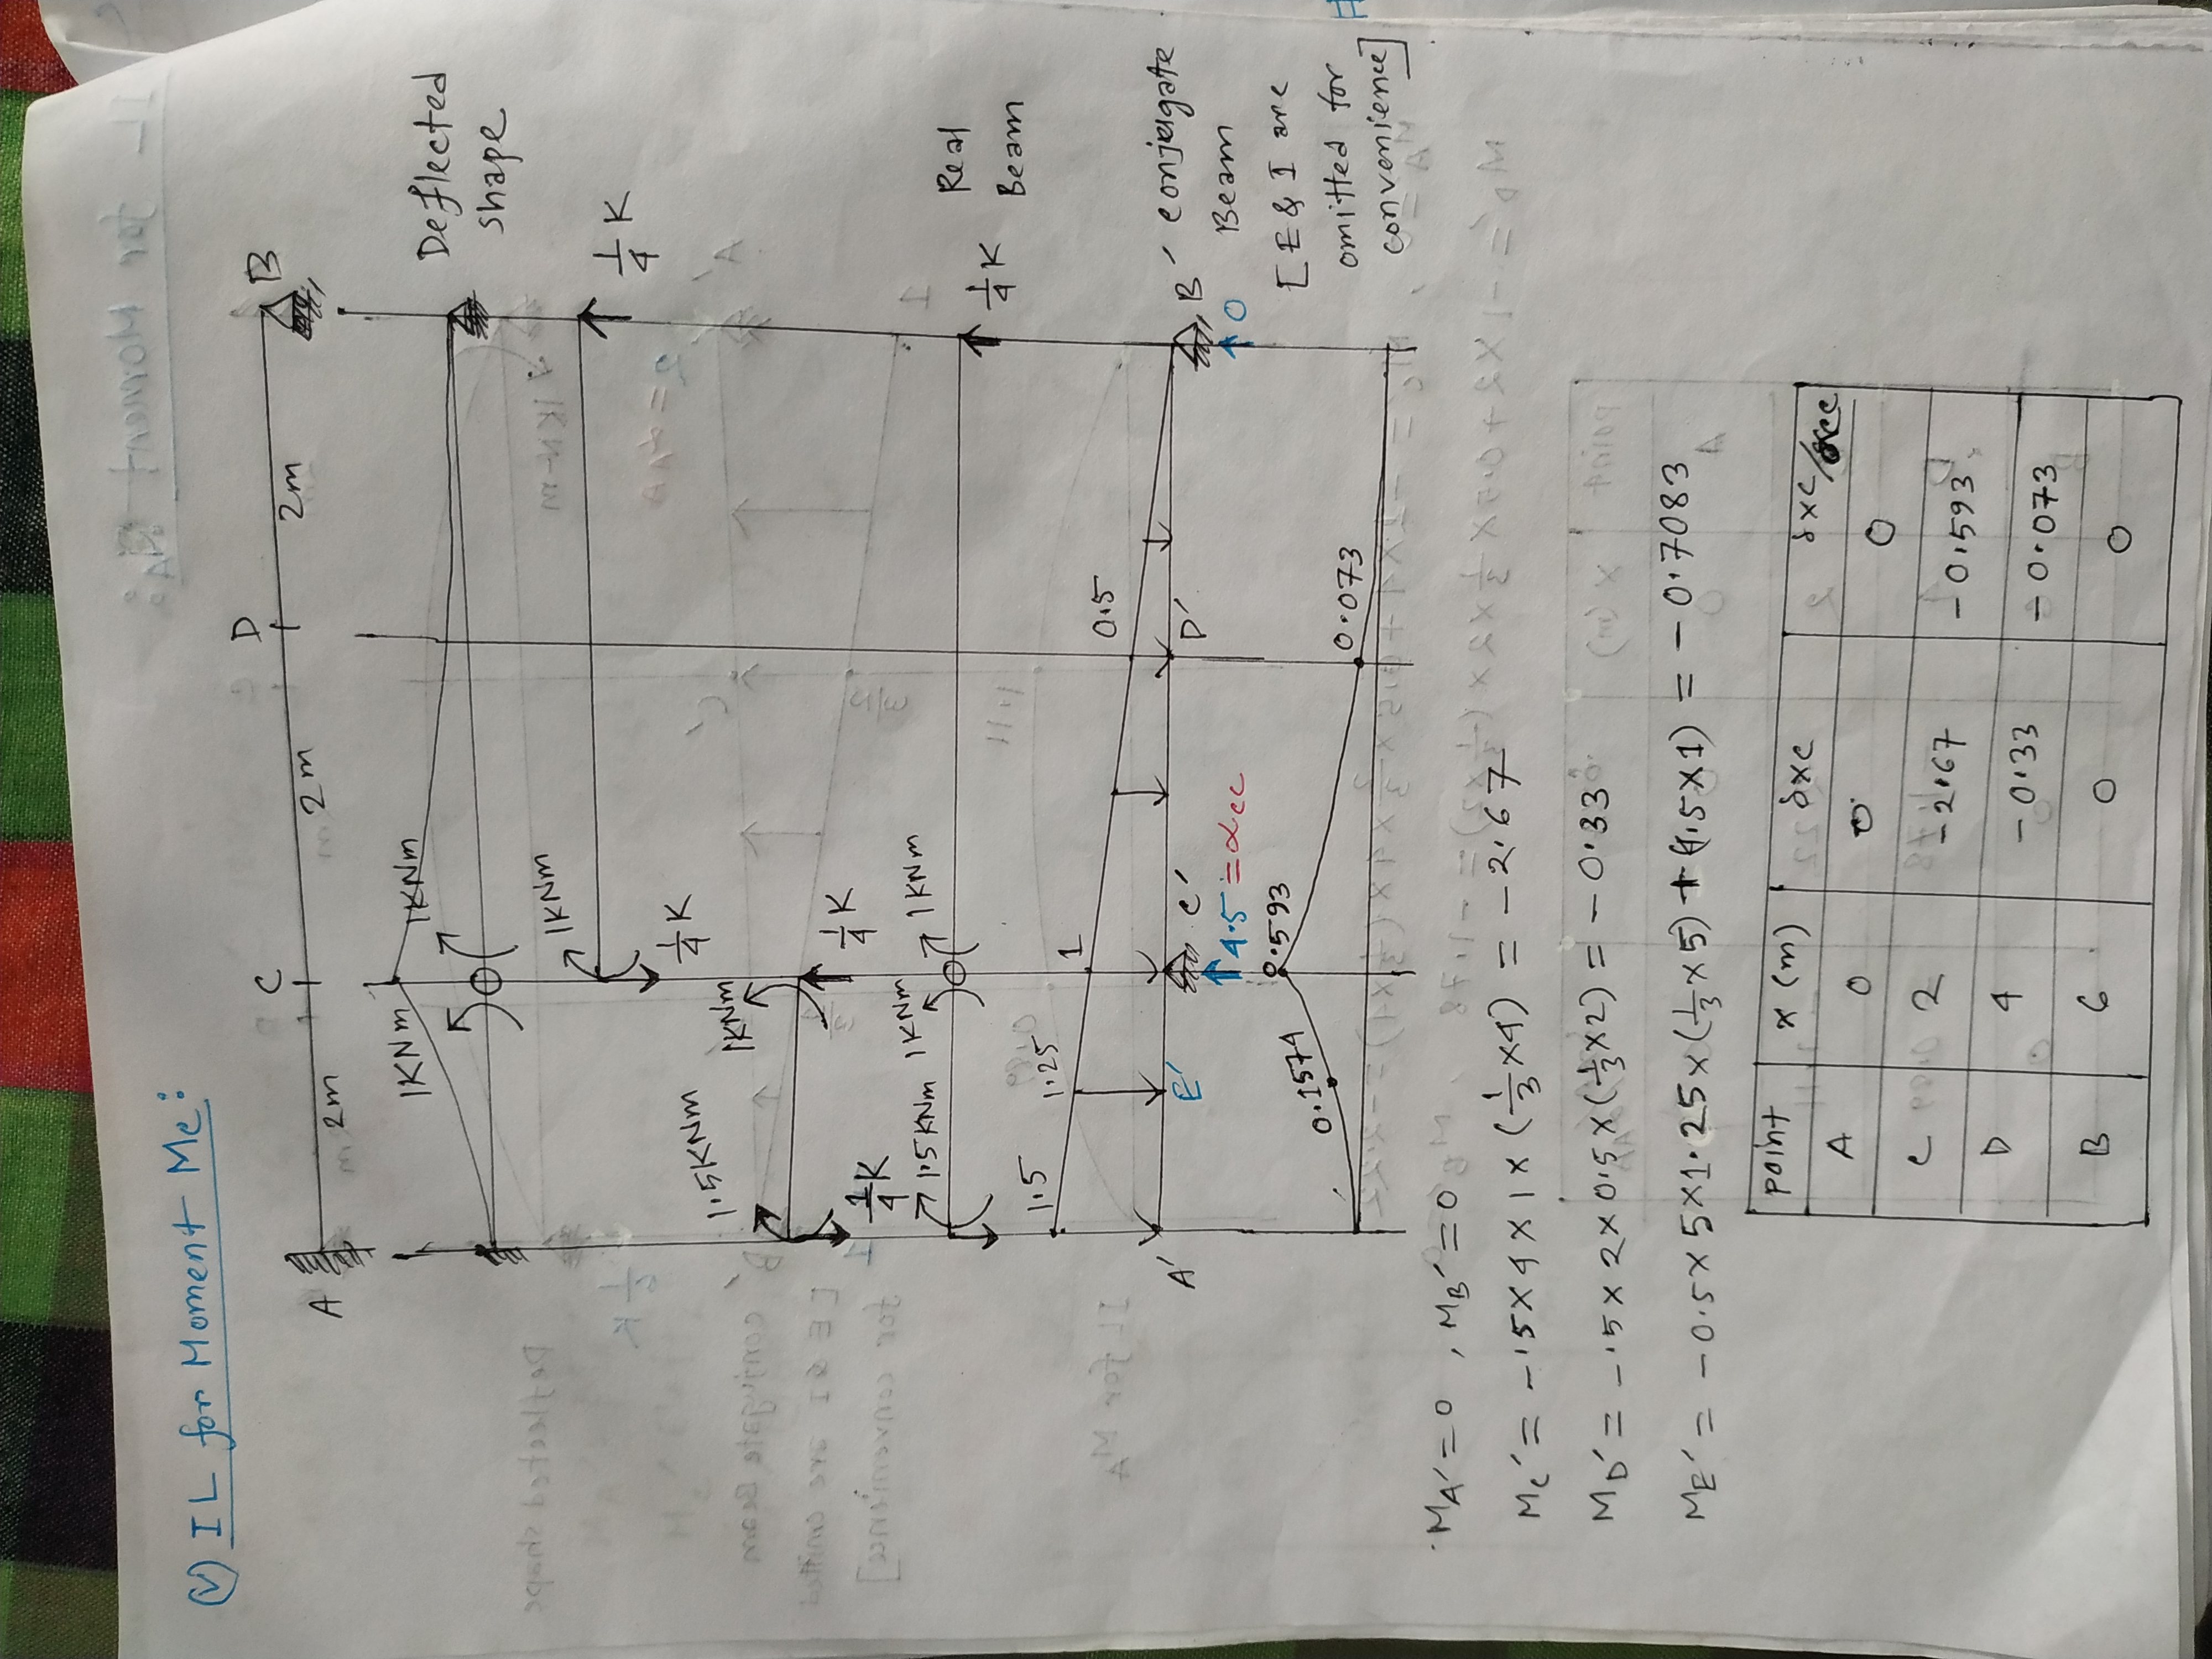 (V) IL for Moment Mc:
A 2m C 2m D 2m B
1KNm 1KNm
Deflected
shape
1KNm 1/4 K
1/4 K
1.5KNm 1KNm 1/4 K
1/4 K
1.5KNm 1KNm 1KNm 1/4 K
Real
Beam
1.5 1.25 1 0.5
A' E' C' D' B'
4.5=αcc 0
conjugate
Beam
[E & I are
omitted for
convenience]
0.1574 0.593 0.073
MA'=0 , MB'=0
Mc' = -.5×4×1×(1/3×4) = -2.67
MD' = -.5×2×0.5×(1/3×2) = -0.33
ME' = -0.5×5×1.25×(1/3×5)+(4.5×1) = -0.7083
point x(m) δxc δxc/αcc
A 0 0 0
C 2 -2.67 -0.593
D 4 -0.33 -0.073
B 6 0 0